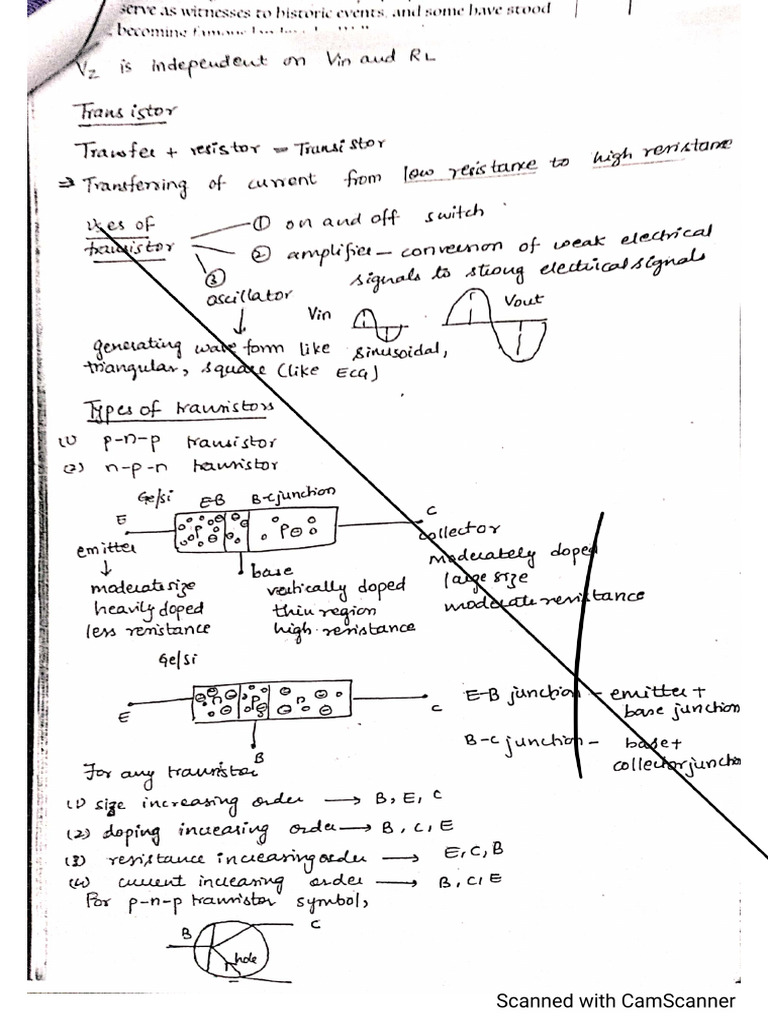 serve as witnesses to historic events, and some have stood
becoming
Vz is independent on Vin and RL
Transistor
Transfer + resistor = Transistor
⇒ Transferring of current from low resistance to high resistance
Uses of transistor
① on and off switch
② amplifier – conversion of weak electrical signals to strong electrical signals
③ oscillator
Vin
Vout
generating wave form like sinusoidal,
triangular, square (like ECG)
Types of transistors
(1) p-n-p transistor
(2) n-p-n transistor
Ge/si E-B B-C junction
E
P P
C
emitter
collector
↓
base
moderate size
heavily doped
less resistance
vertically doped
thin region
high resistance
moderately doped
large size
moderate resistance
Ge/si
n P n
E
C
B
E-B junction – emitter +
base junction
B-C junction – base +
collector junction
For any transistor
(1) size increasing order → B, E, C
(2) doping increasing order → B, C, E
(3) resistance increasing order → E, C, B
(4) current increasing order → B, C, E
For p-n-p transistor symbol,
B
C
hole
Scanned with CamScanner